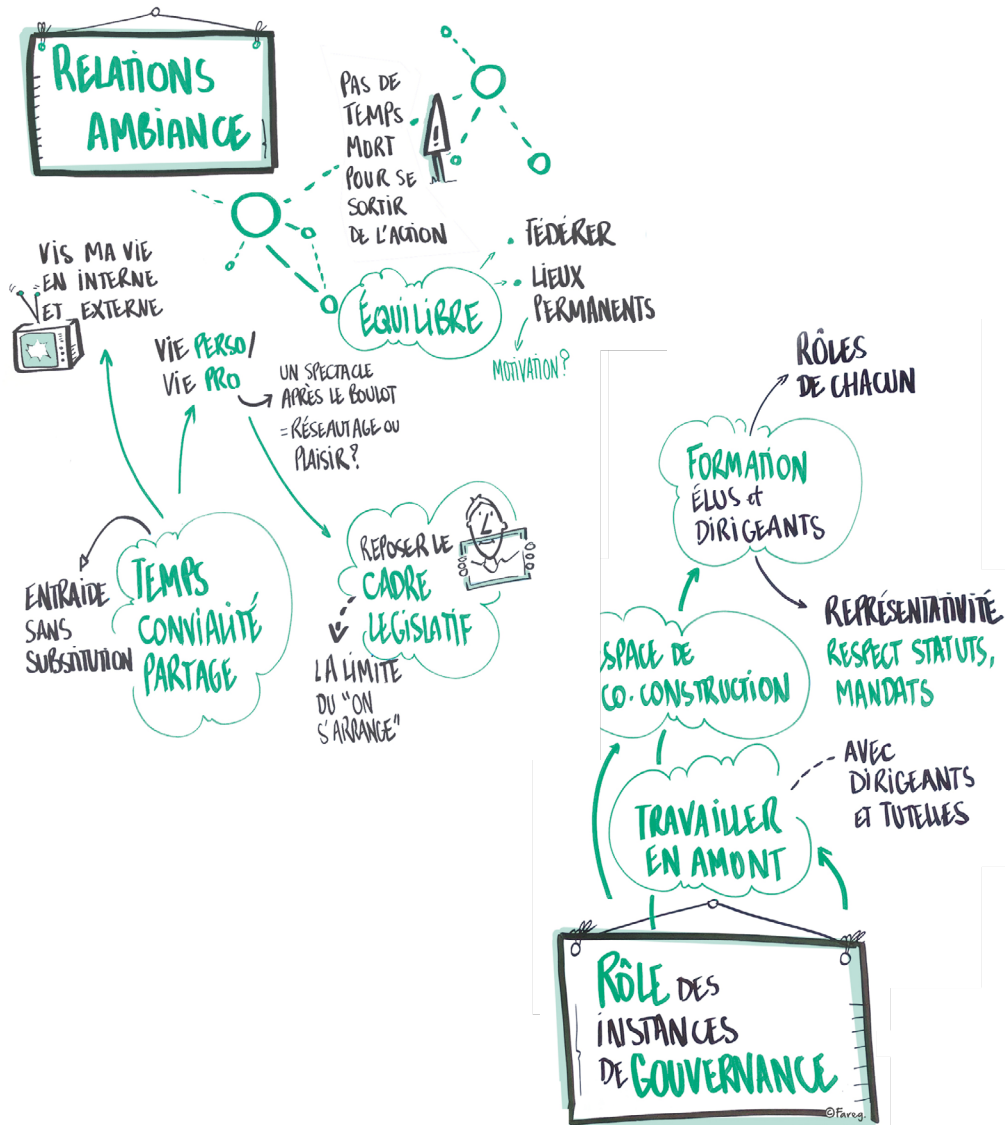 RELATIONS
AMBIANCE
PAS DE
TEMPS
MORT
POUR SE
SORTIR
DE L'ACTION
!
VIS MA VIE
EN INTERNE
ET EXTERNE
ÉQUILIBRE
FÉDÉRER
LIEUX
PERMANENTS
MOTIVATION?
VIE PERSO/
VIE PRO
UN SPECTACLE
APRÈS LE BOULOT
= RÉSEAUTAGE OU
PLAISIR?
TEMPS
CONVIALITÉ
PARTAGE
ENTRAIDE
SANS
SUBSTITUTION
REPOSER LE
CADRE
LEGISLATIF
LA LIMITE
DU "ON
S'ARRANGE"
RÔLES
DE CHACUN
FORMATION
ÉLUS et
DIRIGEANTS
REPRÉSENTATIVITÉ
RESPECT STATUTS,
MANDATS
SPACE DE
CO-CONSTRUCTION
TRAVAILLER
EN AMONT
AVEC
DIRIGEANTS
ET TUTELLES
RÔLE DES
INSTANCES
DE GOUVERNANCE
©Fareg.